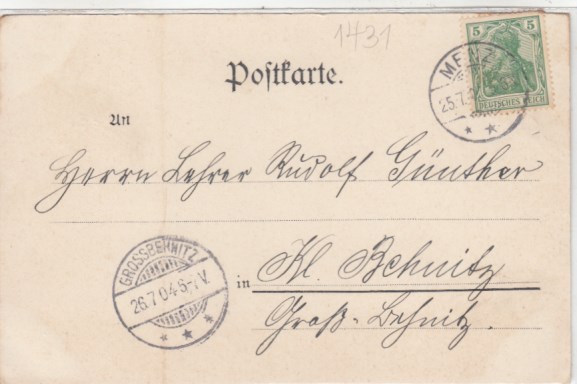 1431
5 5
DEUTSCHES REICH
MENZ
25.7.
Postkarte.
An
Herrn Lehrer Rudolf Günther
GROSSBEHNITZ
26.7.04.6-7V.
in Kl. Behnitz
Groß-Behnitz.